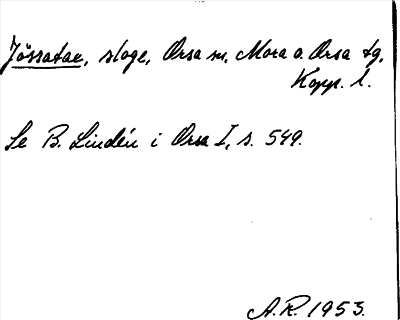 Jössatae, stoge, Orsa sn, Mora o. Orsa tg,
Kopp. l.
Se B. Lindén i Orsa I, s. 549.
A.R. 1953.